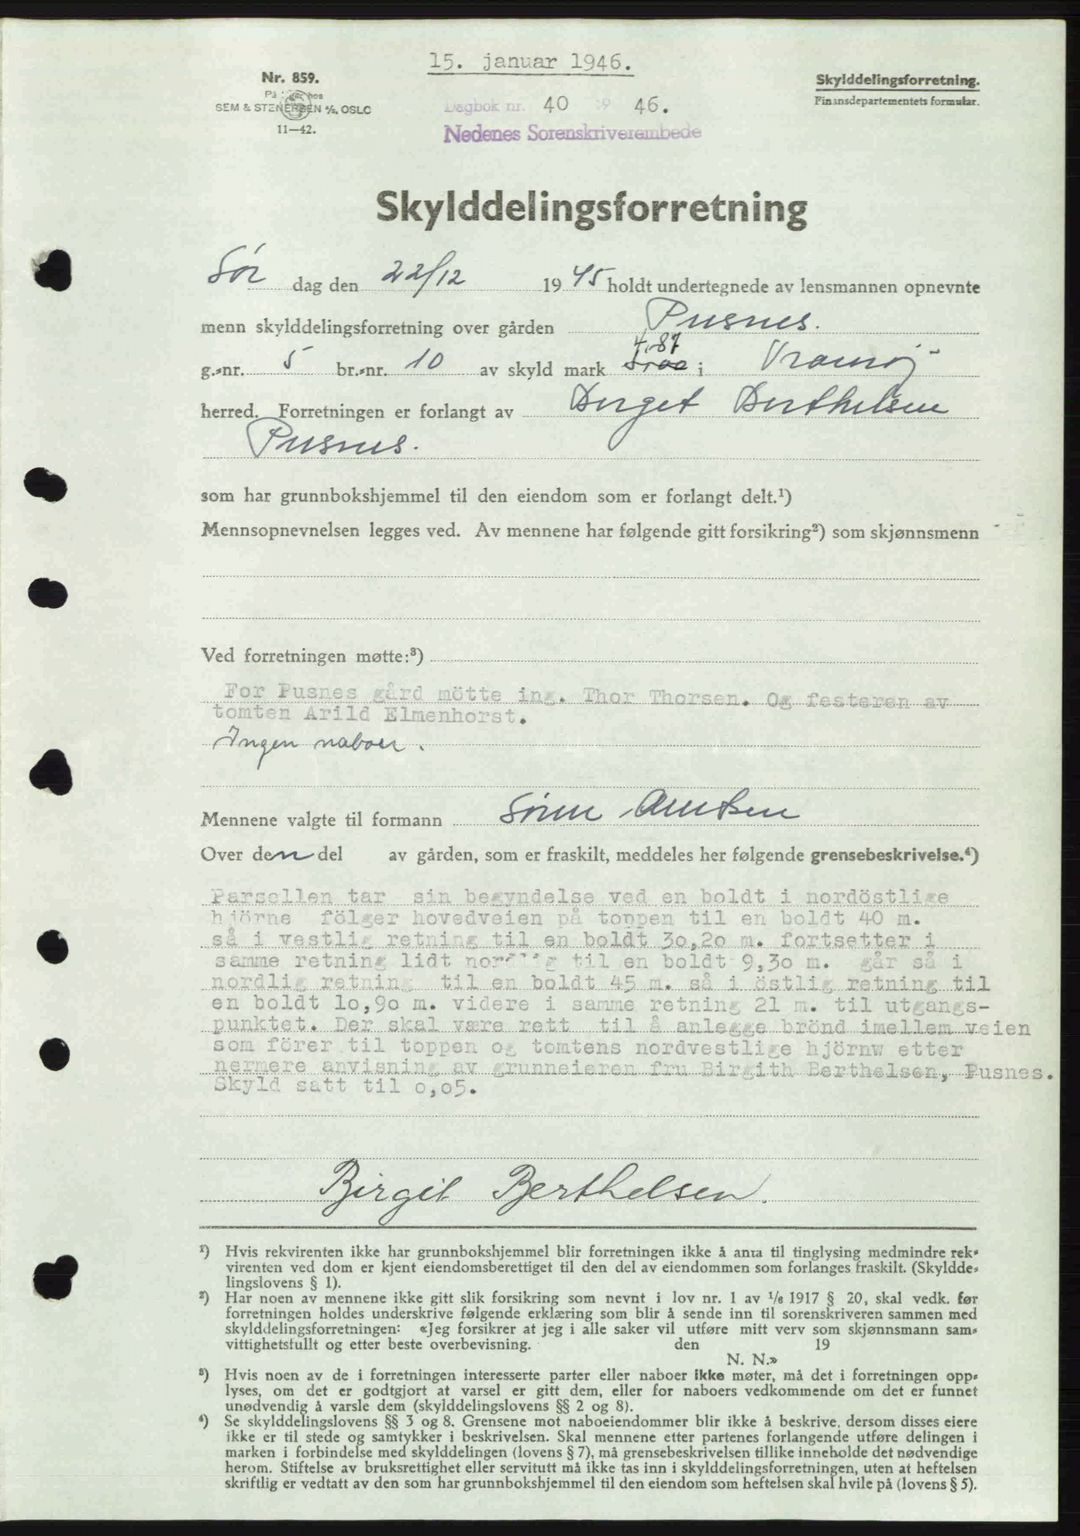 15. januar 1946.
Nr. 859.
SEM & STENERSEN A/S, OSLO
11—42.
Dagbok nr. 40 19 46.
Nedenes Sorenskriverembede
Skylddelingsforretning.
Finansdepartementets formular.
Skylddelingsforretning
Lör dag den 22/12 1945 holdt undertegnede av lensmannen opnevnte
menn skylddelingsforretning over gården Pusnes.
4,87
g.-nr. 5 br.-nr. 10 av skyld mark i Tromøj
herred. Forretningen er forlangt av Birget Berthelsen
Pusnes.
som har grunnbokshjemmel til den eiendom som er forlangt delt.¹)
Mennsopnevnelsen legges ved. Av mennene har følgende gitt forsikring²) som skjønnsmenn
Ved forretningen møtte:³)
For Pusnes gård mötte ing. Thor Thorsen. Og festeren av
tomten Arild Elmenhorst.
Ingen naboer.
Mennene valgte til formann Sören
Over den del av gården, som er fraskilt, meddeles her følgende grensebeskrivelse.⁴)
Parsellen tar sin begyndelse ved en boldt i nordöstlige
hjörne fölger hovedveien på toppen til en boldt 40 m.
så i vestlig retning til en boldt 30,20 m. fortsetter i
samme retning lidt nordlig til en boldt 9,30 m. går så i
nordlig retning til en boldt 45 m. så i östlig retning til
en boldt 10,90 m. videre i samme retning 21 m. til utgangs-
punktet. Der skal være rett til å anlegge brönd imellem veien
som förer til toppen og tomtens nordvestlige hjörnw etter
nermere anvisning av grunneieren fru Birgith Berthelsen, Pusnes.
Skyld satt til 0,05.
Birgit Berthelsen.
¹) Hvis rekvirenten ikke har grunnbokshjemmel blir forretningen ikke å anta til tinglysing medmindre rek-
virenten ved dom er kjent eiendomsberettiget til den del av eiendommen som forlanges fraskilt. (Skyldde-
lingslovens § 1).
²) Har noen av mennene ikke gitt slik forsikring som nevnt i lov nr. 1 av 1/6 1917 § 20, skal vedk. før
forretningen holdes underskrive følgende erklæring som blir å sende inn til sorenskriveren sammen med
skylddelingsforretningen: «Jeg forsikrer at jeg i alle saker vil utføre mitt verv som skjønnsmann sam-
vittighetsfullt og etter beste overbevisning. den 19
N. N.»
³) Hvis noen av de i forretningen interesserte parter eller naboer ikke møter, må det i forretningen opp-
lyses, om det er godtgjort at varsel er gitt dem, eller for naboers vedkommende om det er funnet
unødvendig å varsle dem (skylddelingslovens §§ 2 og 8).
⁴) Se skylddelingslovens §§ 3 og 8. Grensene mot naboeiendommer blir ikke å beskrive, dersom disses eiere
ikke er til stede og samtykker i beskrivelsen. Skal mennene etter partenes forlangende utføre delingen i
marken i forbindelse med skylddelingen (lovens § 7), må grensebeskrivelsen tillike inneholde det nødvendige
herom. Stiftelse av bruksrettighet eller servitutt må ikke tas inn i skylddelingsforretningen, uten at heftelsen
skriftlig er vedtatt av den som har grunnbokshjemmel til den eiendom som heftelsen skal hvile på (lovens § 5).